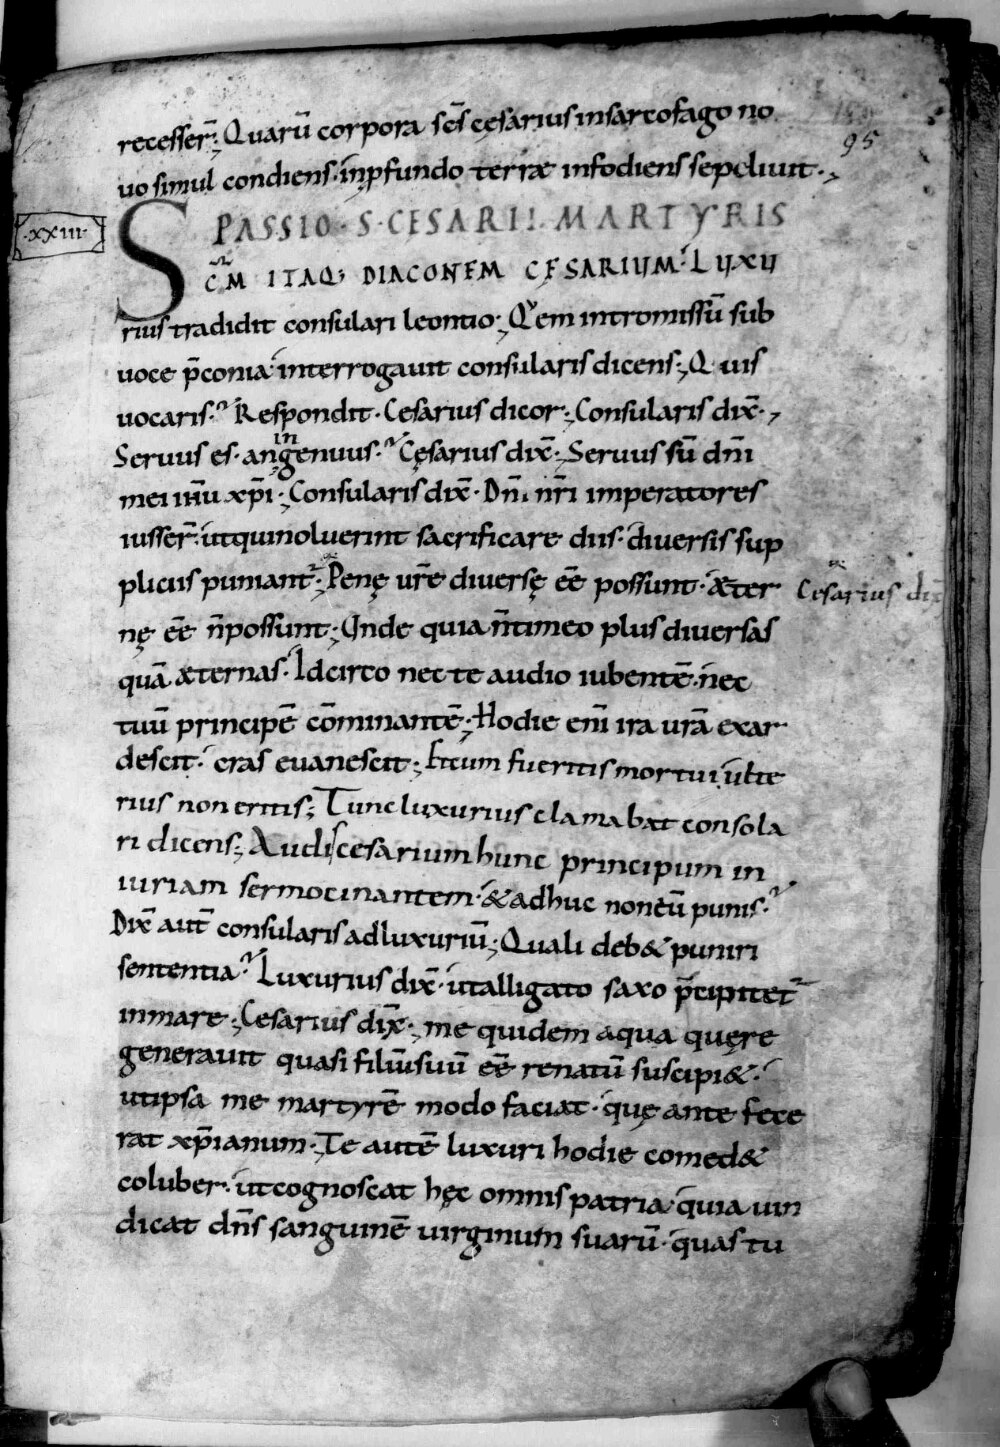 95
recesser̄; Quarū corpora sc̄s cęsarius insarcofago no
uo simul condiens· inpfundo terræ infodiens sepeliuit·,
·xxiii·
PASSIO· S· CESARII· MARTYRIS
SCM̄ ITAQ; DIACONEM CĘSARIUM· LUXU
rius tradidit consulari leontio; Quem intromissū sub
uoce p̄conia· interrogauit consularis dicens; Quis
uocaris? Respondit· Cesarius dicor; Consularis dix̄·,
Seruus es· an ingenuus? Cęsarius dix̄; Seruus sū dn̄i
mei ihū xp̄i; Consularis dix̄· Dn̄i nr̄i imperatores
iusser̄· utquinoluerint sacrificare diis· diuersis sup
pliciis puniant̄; Penę ur̄e diuersę eē possunt· æter
Cesarius dix̄
nę eē n̄possunt; Unde quia n̄timeo plus diuersas
quā æternas· Idcirco nec te audio iubentē· nec
tuū principē cōminantē; Hodie eni̅ ira ur̄a exar
descit· cras euanescit; Et cum fueritis mortui· ulte
rius non eritis; Tunc luxurius clamabat consola
ri dicens; Audis cesarium hunc principum in
iuriam sermocinantem· & adhuc non eū punis?
Dix̄ aut̄ consularis adluxuriū; Quali deb& puniri
sententia? Luxurius dix̄· utalligato saxo p̄cipitet̄
inmare; Cesarius dix̄; me quidem aqua quęre
generauit quasi filiūsuū eē renatū suscipi&·
utipsa me martyrē modo faciat· quę ante fece
rat xp̄ianum; Te autē luxuri hodie comed&
coluber· utcognoscat hęc omnis patria· quia uin
dicat dn̄s sanguinē uirginum suarū· quas tu